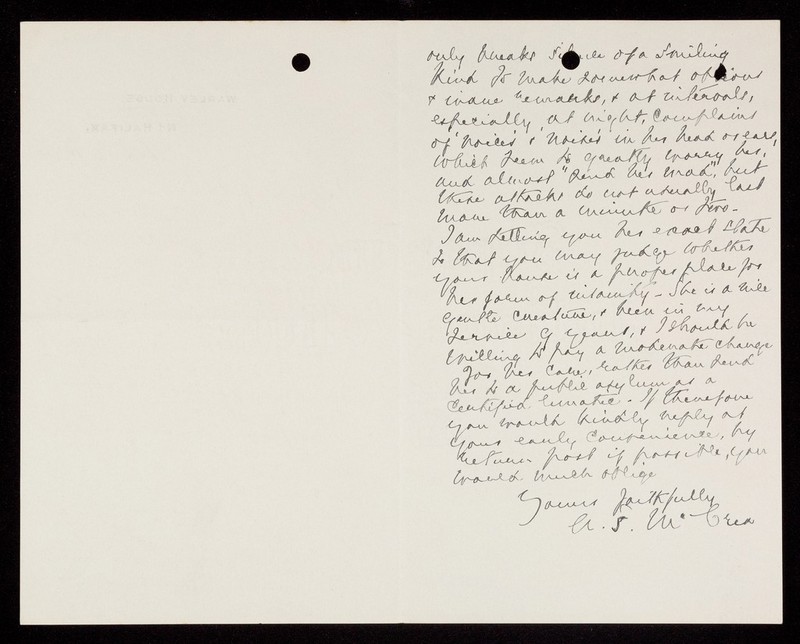 only breaks silence of a smiling
kind to make somewhat obvious
& inane remarks, & at intervals,
especially at night, complains
of 'voices' & 'noises' in her head or ears,
which seem to greatly worry her,
and almost "send her mad", but
these attacks do not usually last
more than a minute or two -
I am telling you her exact state
so that you may judge whether
your house is a proper place for
her form of insanity - She is a nice
gentle creature, & been in my
service 9 years, & I should be
willing to pay a moderate charge
for her care, rather than send
her to a public asylum as a
certified lunatic - If therefore
you would kindly reply at
your early convenience, by
return post if possible, you
would much oblige
Yours faithfully
A. S. McCrea